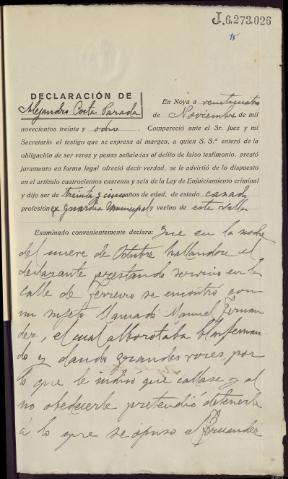 J.6.273.026
15
DECLARACIÓN DE
Alejandro Costa Parada
En Noya a veinticuatro
de Noviembre de mil
novecientos treinta y ocho. Compareció ante el Sr. Juez y mi
Secretario el testigo que se expresa al margen, a quien S. Sª enteró de la
obligación de ser veraz y penas señaladas al delito de falso testimonio, prestó
juramento en forma legal ofreció decir verdad, se le advirtió de lo dispuesto
en el artículo cuatrocientos cuarenta y seis de la Ley de Enjuiciamiento criminal
y dijo ser de treinta y cinco años de edad, de estado casado
profesión ex Guardia Municipal y vecino de esta villa
Examinado convenientemente declara: Que en la noche
del nueve de Octubre hallandose el
declarante prestando servicio en la
calle de Ferreiro se encontró con
un sujeto llamado Manuel Fernan
dez, el cual alborotaba blasfeman
do y dando grandes voces, por
lo que le indicó que callase y al
no obedecerle pretendió detenerlo
á lo que se opuso el Fernandez